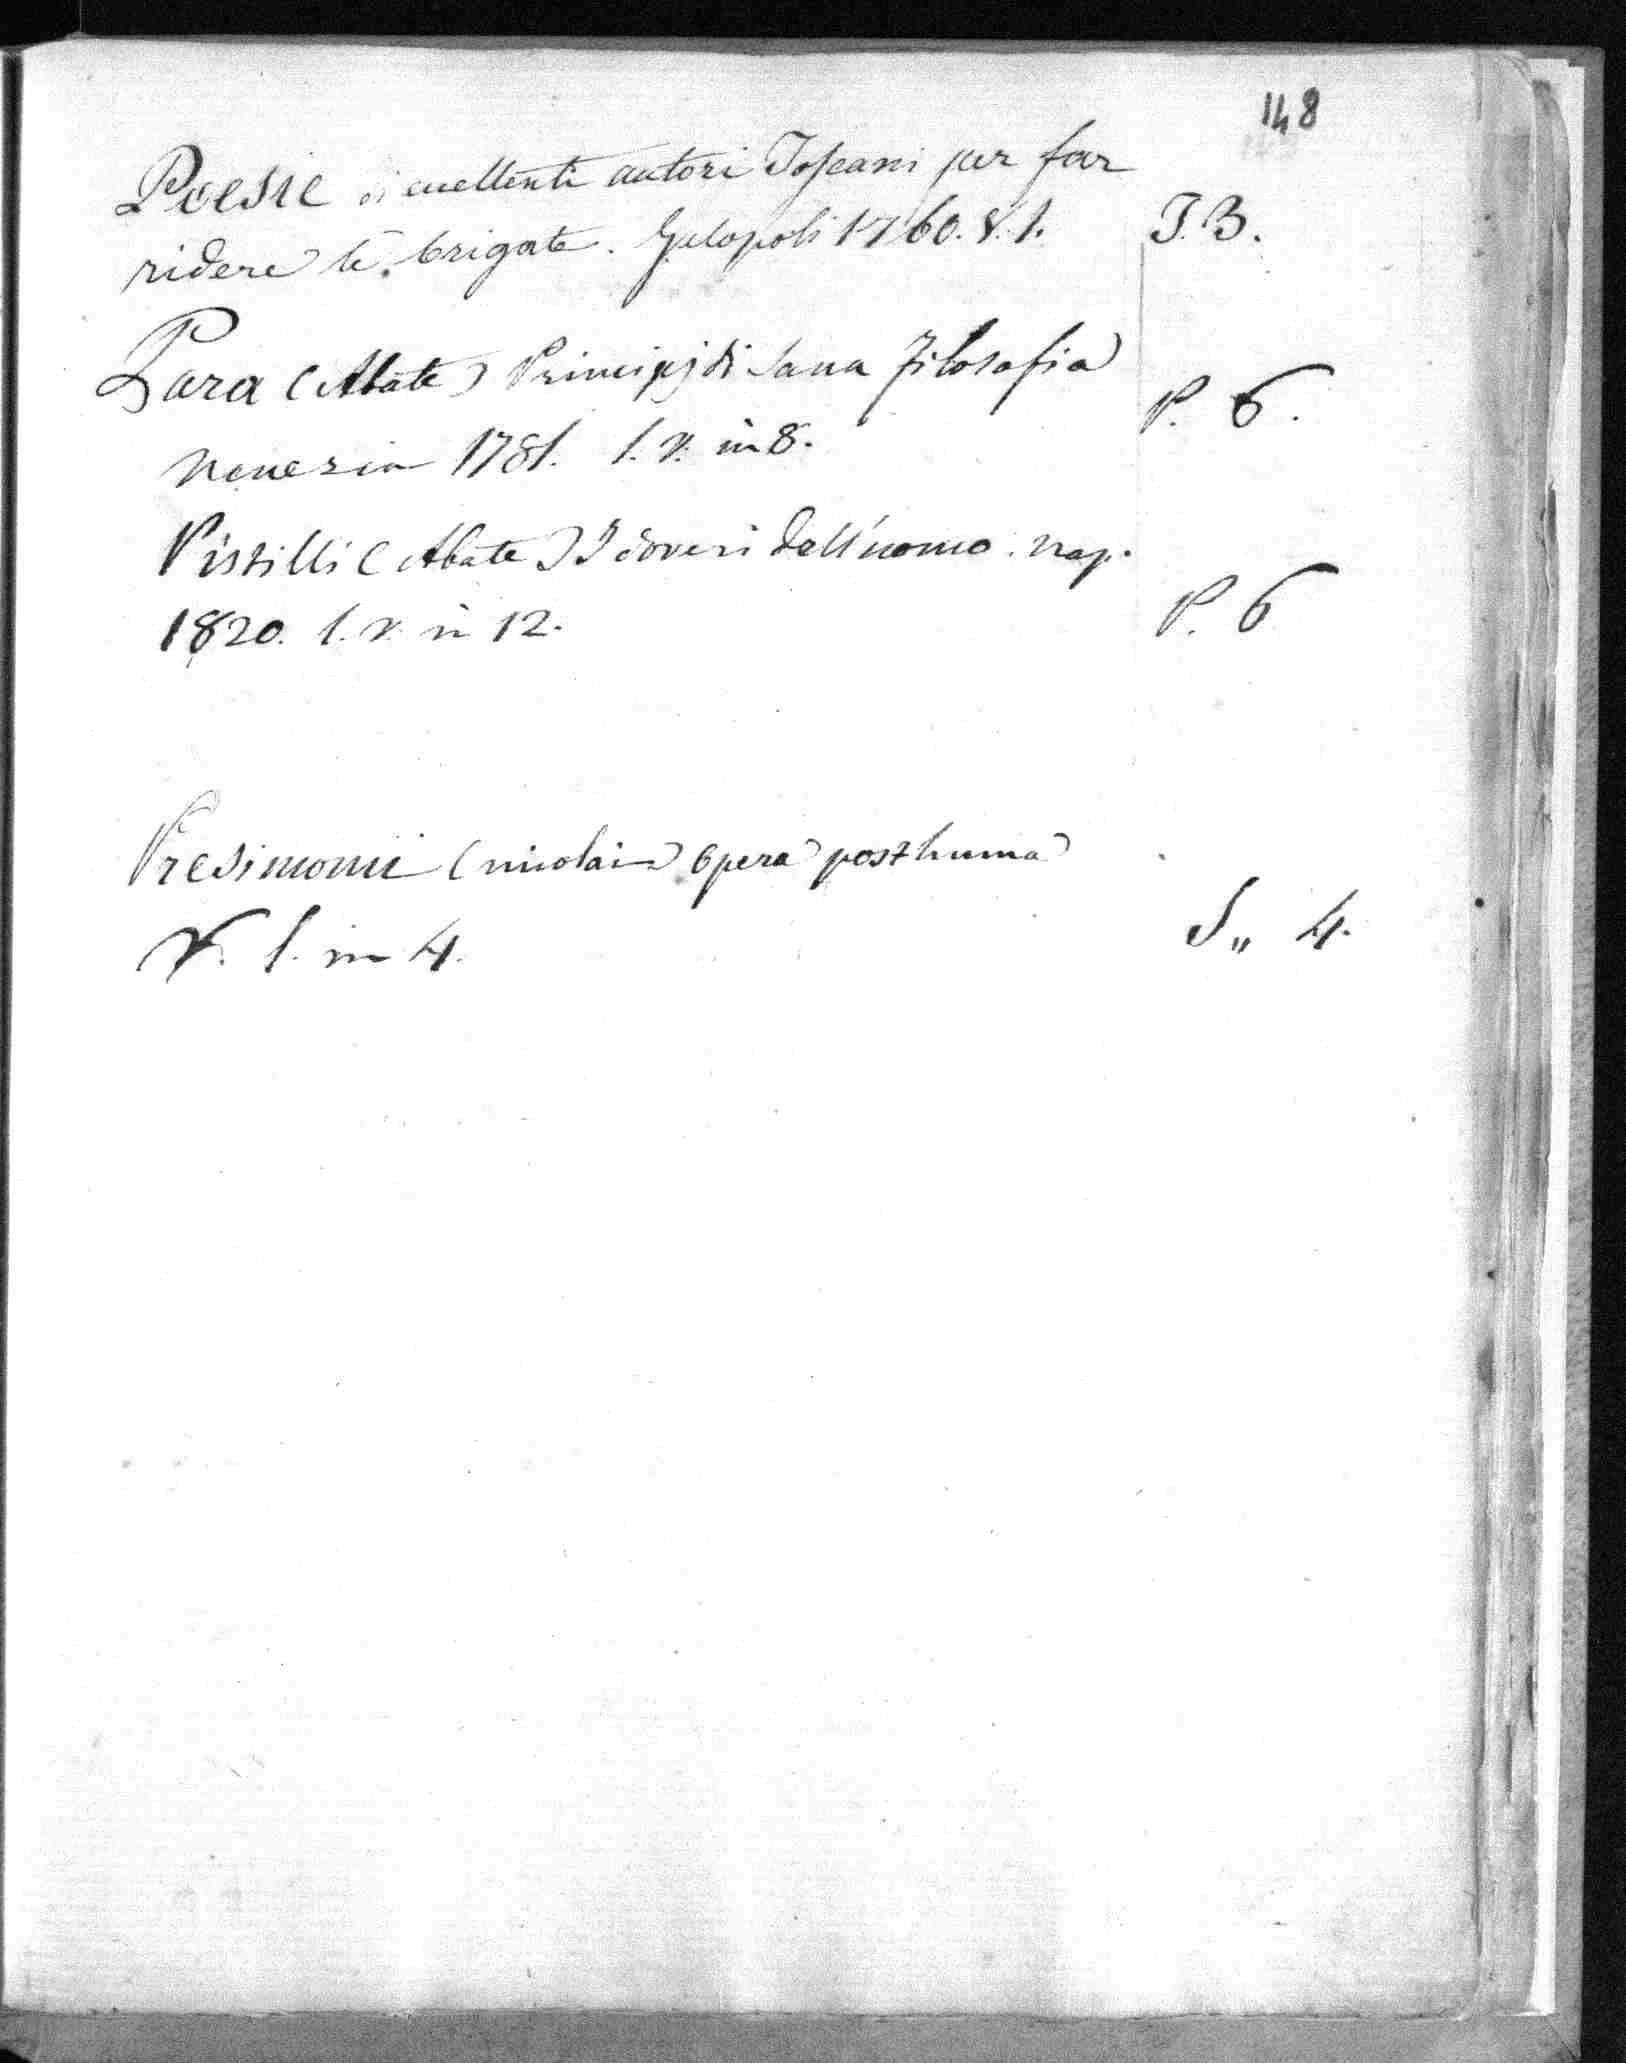 148
Poesie di eccellenti autori Toscani per far
ridere le brigate. Gelopoli 1760. v. 1. J. B.
Para (Abate) Principj di Sana Filosofia
Venezia 1781. 1. v. in 8. P. 6.
Pistilli (Abate) I doveri dell'uomo. Nap.
1820. 1. v. in 12. P. 6
Presimonii (Nicolai) Opera posthuma
V. 1. in 4. S,, 4.